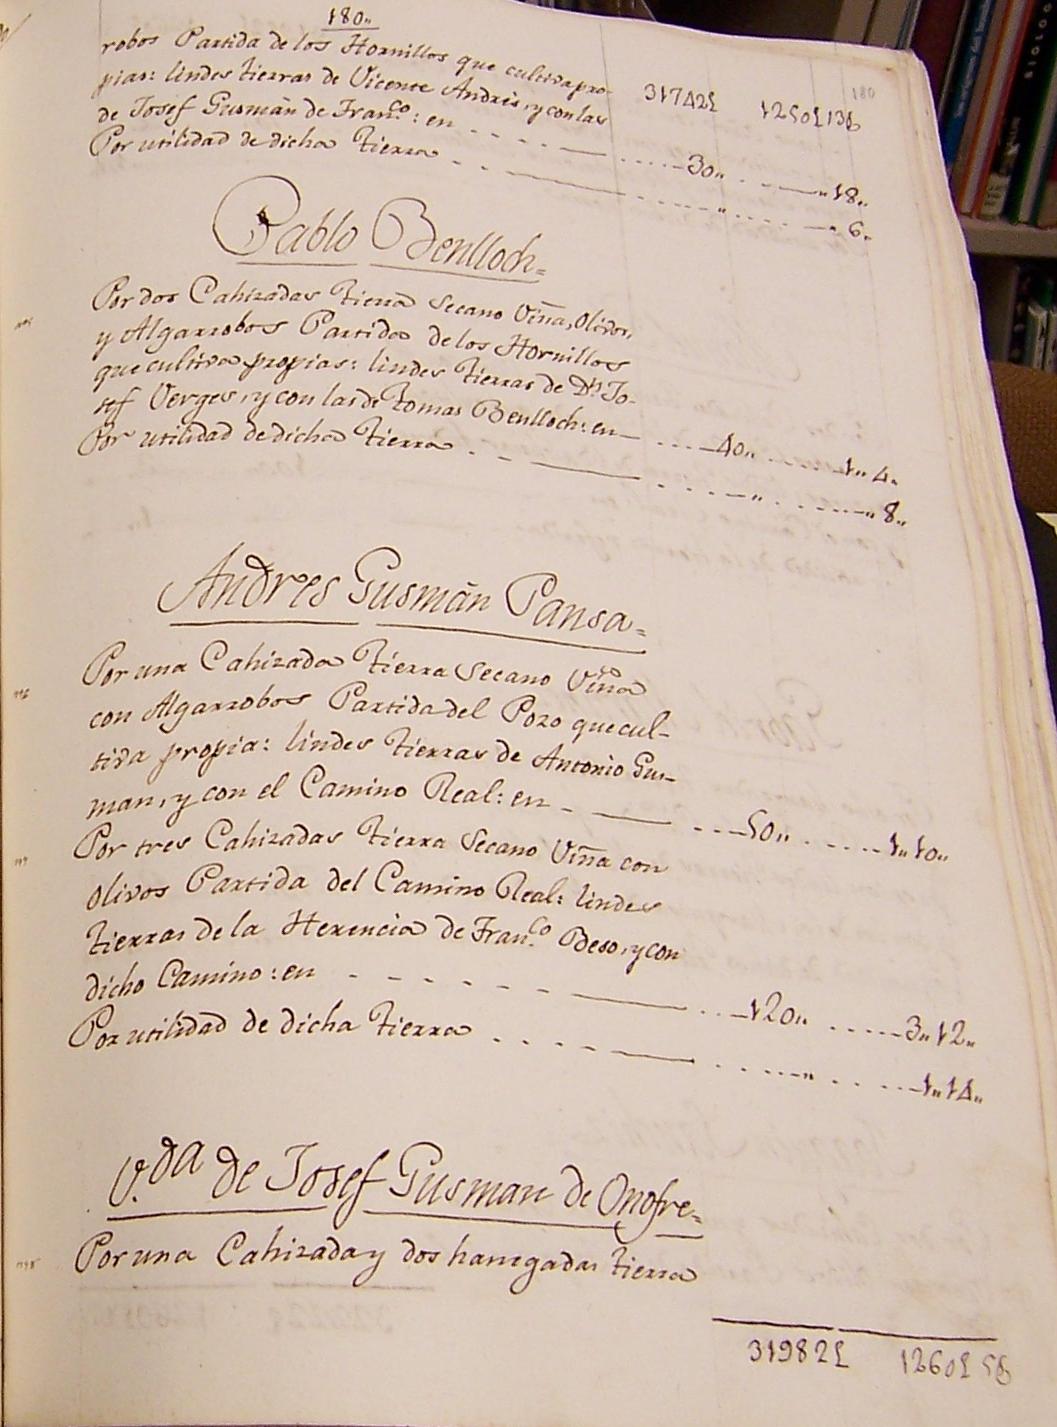 180„
180
robos Partida de los Hornillos que cultiva pro-
pias: lindes tierras de Vicente Andrés, y con las
31742£ 1250£13ß
de Josef Gusmán de Fran.co: en 30„ „18„
Por utilidad de dicha tierra „ „6„
Pablo Benlloch=
Por dos Cahizadas tierra Secano Viña, Olivos,
y Algarrobos Partida de los Hornillos
que cultiva propias: lindes tierras de Dn. Jo-
sef Verges, y con las de Tomas Benlloch: en 40„ 1„4„
Por utilidad de dicha tierra „ „8„
Andres Gusmán Pansa=
Por una Cahizada tierra Secano Viña
con Algarrobos Partida del Pozo que cul-
tiva propia: lindes tierras de Antonio Gus-
man, y con el Camino Real: en 50„ 1„10„
Por tres Cahizadas tierra Secano Viña con
Olivos Partida del Camino Real: lindes
tierras de la Herencia de Fran.co Beso, y con
dicho Camino: en 120„ 3„12„
Por utilidad de dicha tierra „ 1„14„
V.da de Josef Gusman de Onofre=
Por una Cahizada y dos hanegadas tierra
31982£ 1260£5ß